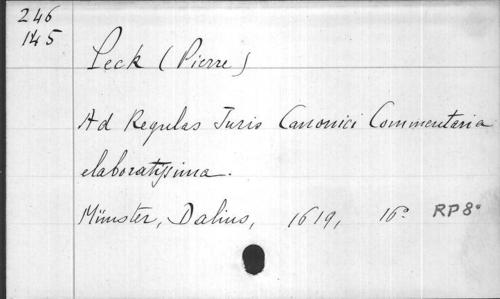 246
145
Peck (Pierre)
Ad Regulas Juris Canonici Commentaria
elaboratissima.
Münster, Dalius, 1619, 16° RP8°